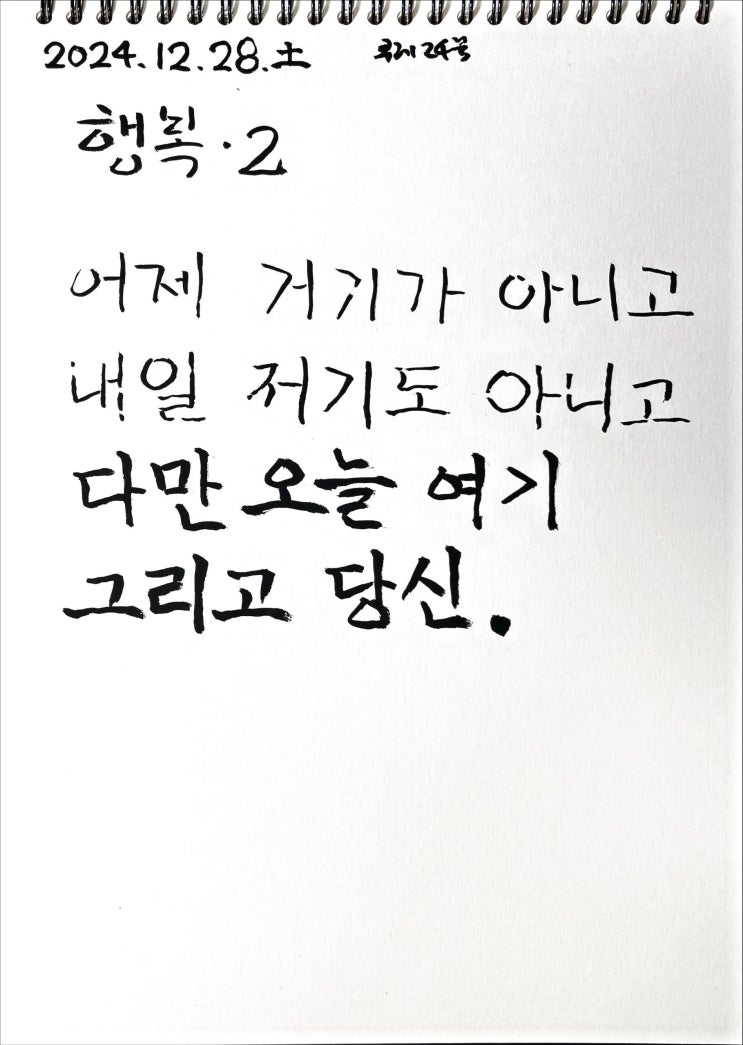 2024.12.28.土
24
행복·2
어제 거기가 아니고
내일 저기도 아니고
다만 오늘 여기
그리고 당신.